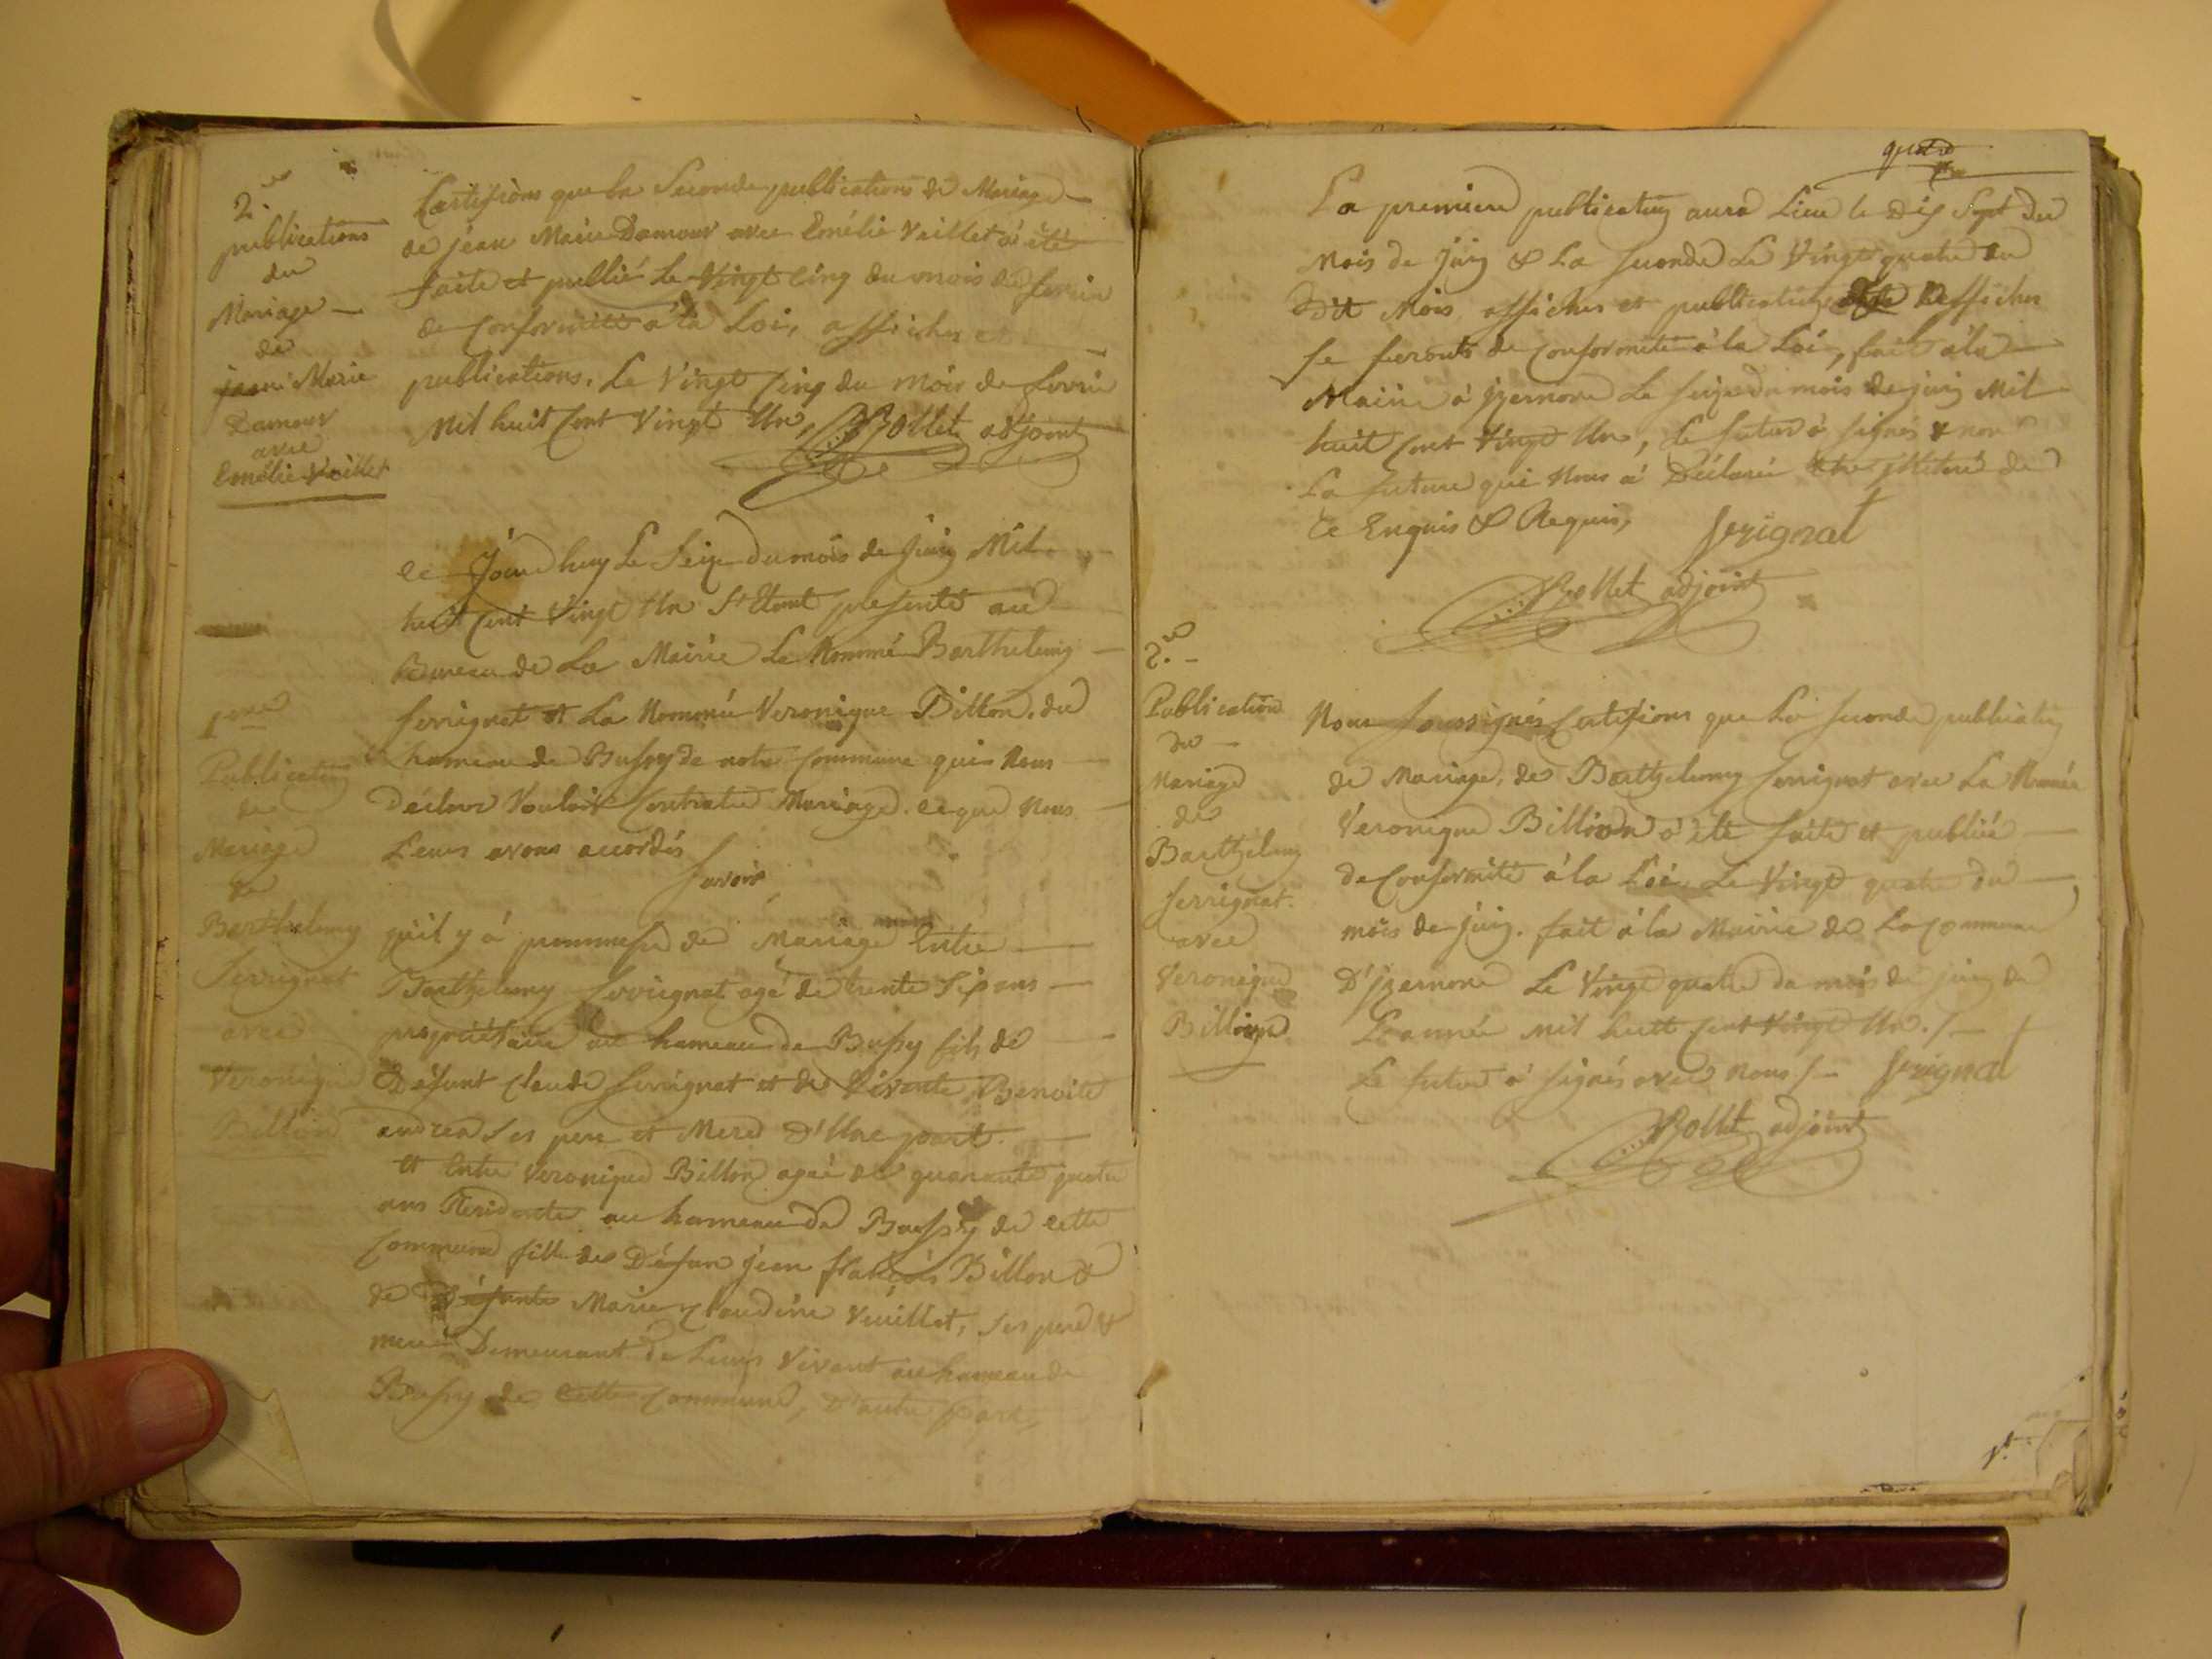 2.
publications
du
Mariage
de
jean Marie
Damour
avec
Emélie Veillet
Certifions que la Seconde publications de Mariage
de jean Marie Damour avec Emélie Veillet à été
faite et publié Le Vingt Cinq du mois de fevrie
de Conformité à la Loi, affiches et
publications. Le Vingt Cinq du mois de fevrie
Mil huit Cent Vingt Un, Bollet adjoint
ce Jourdhuy Le Seize du mois de Juin Mil
huit Cent Vingt Un S'Etant présenté au
Bureau de La Mairie Le Nommé Barthelemy
Serrignat et La Nommée Veronique Billon, du
hameau de Bussy de notre Commune qui Nous
Déclare Vouloir Contracter Mariage. ce que Nous
Leurs avons accordés
Savoir
1ere
Publication
de
Mariage
de
Barthelemy
Serrignat
avec
Veronique
Billon
qu'il y à prommesse de Mariage Entre
Barthelemy Serrignat agé de trente Six ans
propriétaire au hameau de Bussy fils de
Défunt Claude Serrignat et de Vivante Benoite
andrea Ses pere et Mere D'Une part.
et Entre Veronique Billon agée de quarante quatre
ans Residante au hameau de Bussy de cette
Commune fille de Défun jean francois Billon &
de Défunte Marie Claudine Veuillet, Ses pere &
mere Demeurant de Leurs Vivant au hameau de
Bussy de cette Commune, D'autre part,
quatre
La premiere publication aura Lieu le Dix Sept du
Mois de juin & La Seconde Le Vingt quatre du
Dit Mois affiches et publication D'affiches
Se feronts de Conformité à la Loi, fait à la
Mairie à jzernore Le Seize du mois de juin Mil
huit Cent Vingt Un, le futur à Signés & non
La future qui Nous à Déclaré Etre jlliteré de
Ce Enquis & Requis,
Serignat
Bollet adjoint
2.
Publication
du
Mariage
de
Barthelemy
Serrignat.
avec
Veronique
Billion
Nous Soussignés Certifions que La Seconde publication
de Mariage, de Barthelemy Serrignat avec La Nommée
Veronique Billion à été faite et publiée
de Conformité à la Loi, Le Vingt quatre du
mois de juin. fait à la Mairie de La Commune
D'jzernore Le Vingt quatre du mois de juin de
L'année mil huit Cent Vingt Un. /
Le futur à Signés avec nous / Serignat
Bollet adjoint